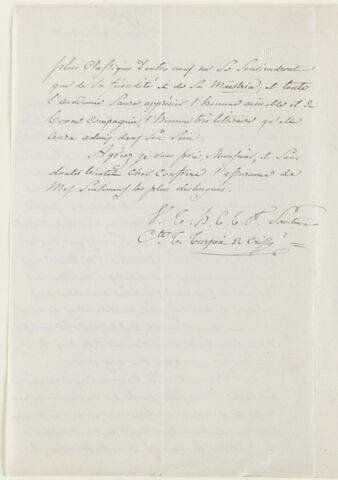 plus classique d'entre nous ne se souviendrait
que de sa fécondité et de sa Maëstria; et toute
l'académie saura apprécier l'homme aimable et de
bonne compagnie, l'homme très lettré qu'elle
aura admis dans son sein.
Agréez je vous prie, Monsieur, et sans
doute bientôt cher Confrère l'assurance de
mes sentiments les plus distingués.
V. T. H. E. T. O. Serviteur
Cte T. Turpin de Crissé